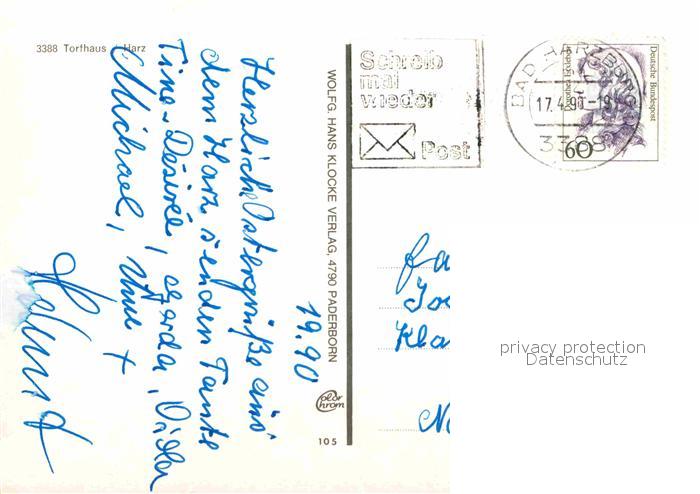 3388 Torfhaus / Harz
Herzliche Ostergrüße aus
dem Harz senden Tante
Tina-Désirée, Gerda, Volker
Michael, Uwe +
Helmut
19.90
WOLFG. HANS KLOCKE VERLAG, 4790 PADERBORN
color
chrom
105
Schreib
mal
wieder
Post
BAD HARZBURG
17.4.90-19
3388
Deutsche Bundespost
60
Fa
Jo
Kla
N
privacy protection
Datenschutz